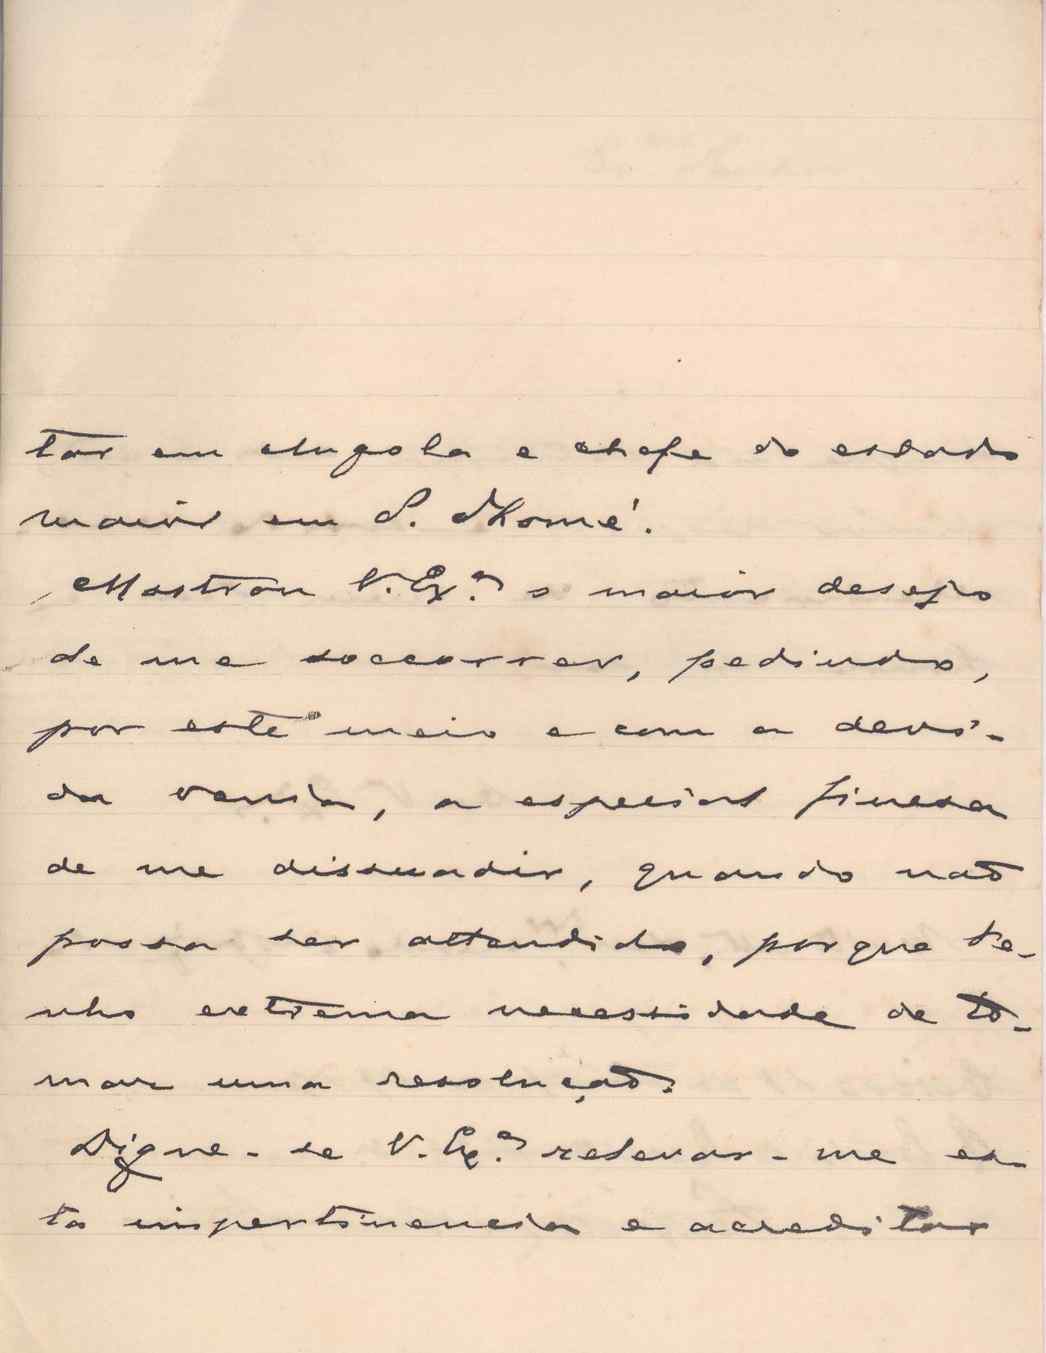 tar em Angola e chefe do estado
maior em S. Thomé.
Mostrou V. Ex.ª o maior desejo
de me soccorrer, pedindo,
por este meio e com a devi-
da venia, a especial finesa
de me dissuadir, quando não
possa ser attendido, porque te-
nho extrema necessidade de to-
mar uma resolução.
Digne-se V. Ex.ª relevar-me es-
ta impertinencia e acreditar